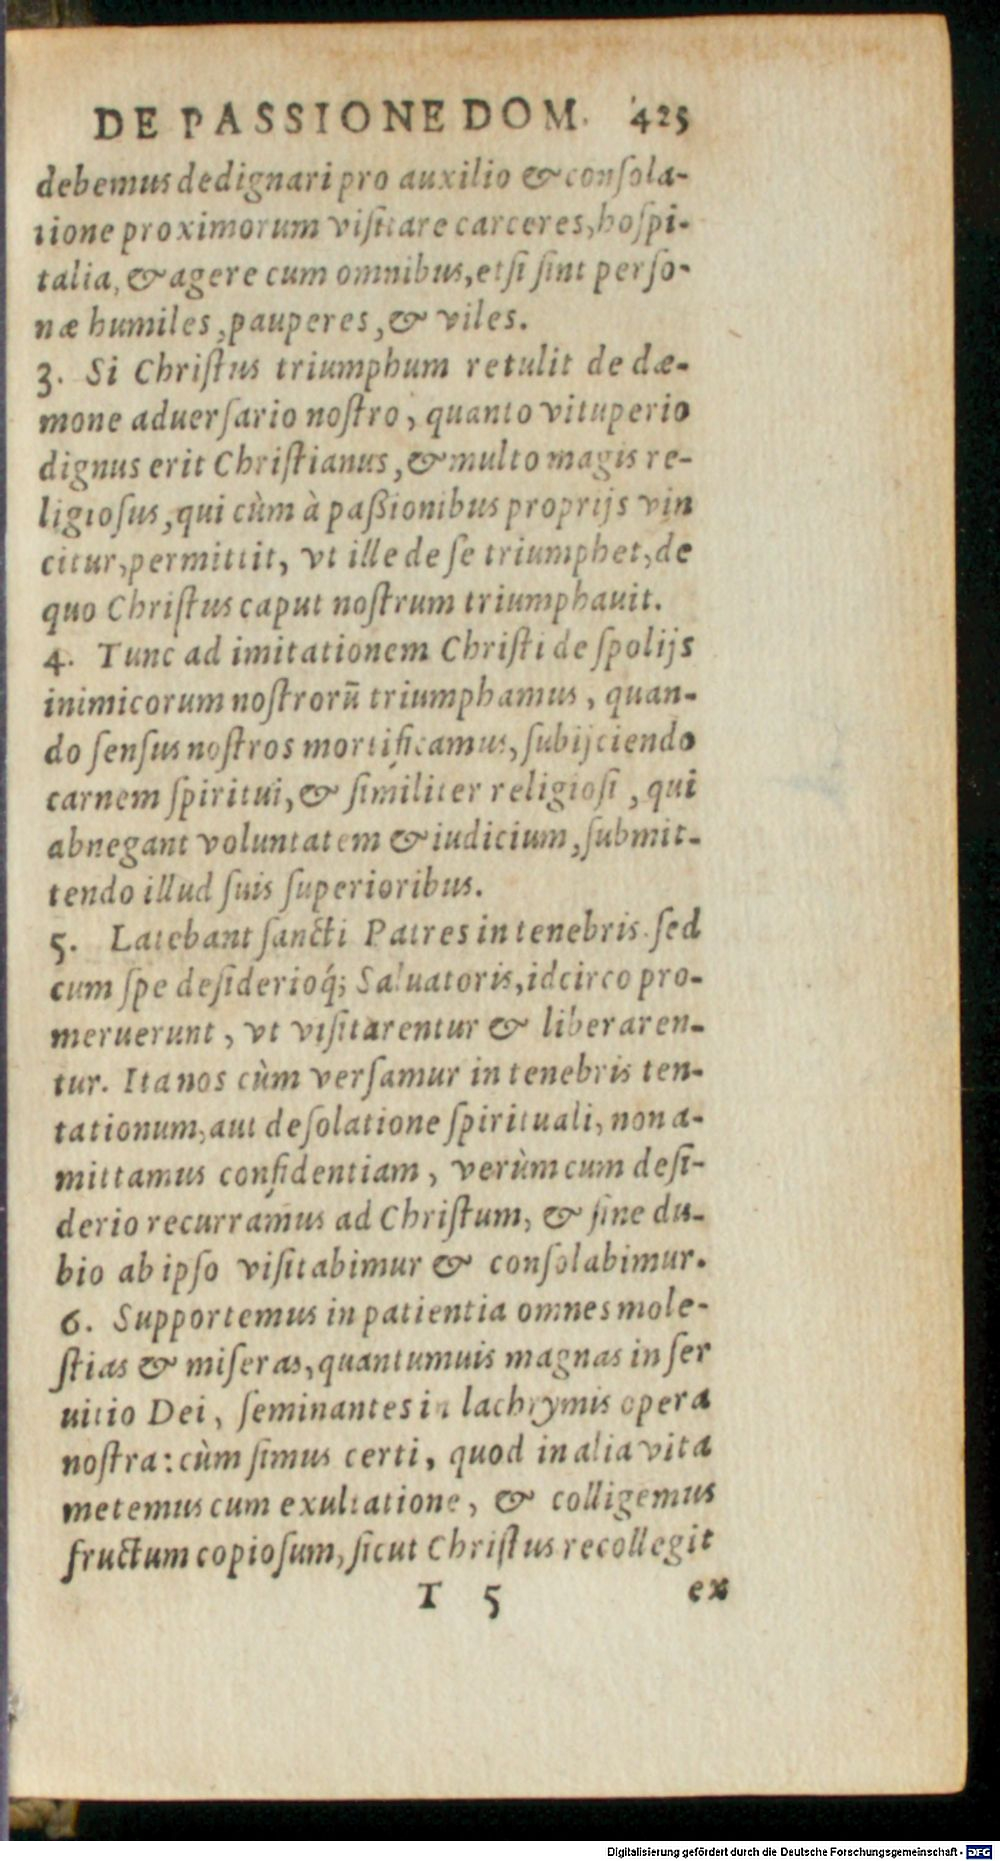 DE PASSIONE DOM. 425
debemus dedignari pro auxilio & conſola-
tione proximorum viſitare carceres, hoſpi-
talia, & agere cum omnibus, etſi ſint perſo-
næ humiles, pauperes, & viles.
3. Si Chriſtus triumphum retulit de dæ-
mone aduerſario noſtro, quanto vituperio
dignus erit Chriſtianus, & multo magis re-
ligioſus, qui cùm à paßionibus proprijs vin
citur, permittit, vt ille de ſe triumphet, de
quo Chriſtus caput noſtrum triumphauit.
4. Tunc ad imitationem Chriſti de ſpolijs
inimicorum noſtrorũ triumphamus, quan-
do ſenſus noſtros mortificamus, ſubijciendo
carnem ſpiritui, & ſimiliter religioſi, qui
abnegant voluntatem & iudicium, ſubmit-
tendo illud ſuis ſuperioribus.
5. Latebant ſancti Patres in tenebris. ſed
cum ſpe deſiderioq́; Saluatoris, idcirco pro-
meruerunt, vt viſitarentur & liberaren-
tur. Ita nos cùm verſamur in tenebris ten-
tationum, aut deſolatione ſpirituali, non a-
mittamus confidentiam, verùm cum deſi-
derio recurramus ad Chriſtum, & ſine du-
bio ab ipſo viſitabimur & conſolabimur.
6. Supportemus in patientia omnes mole-
ſtias & miſeras, quantumuis magnas in ſer
uitio Dei, ſeminantes in lachrymis opera
noſtra: cùm ſimus certi, quod in alia vita
metemus cum exultatione, & colligemus
fructum copioſum, ſicut Chriſtus recollegit
T 5 ex
Digitalisierung gefördert durch die Deutsche Forschungsgemeinschaft - DFG